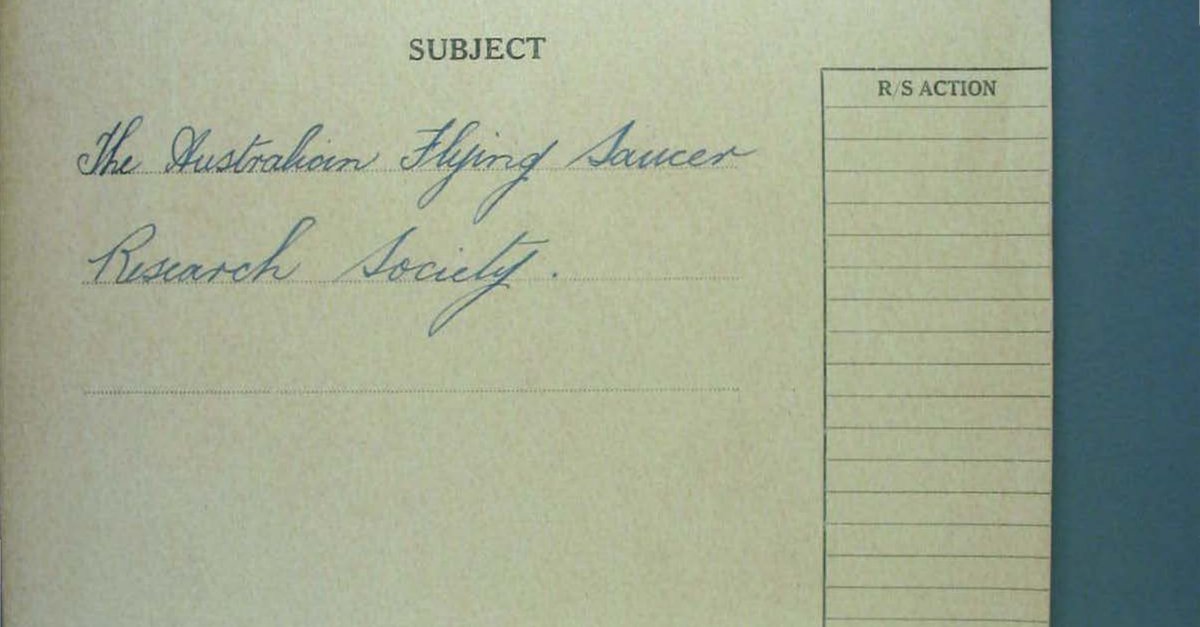 SUBJECT
R/S ACTION
The Australian Flying Saucer
Research Society.